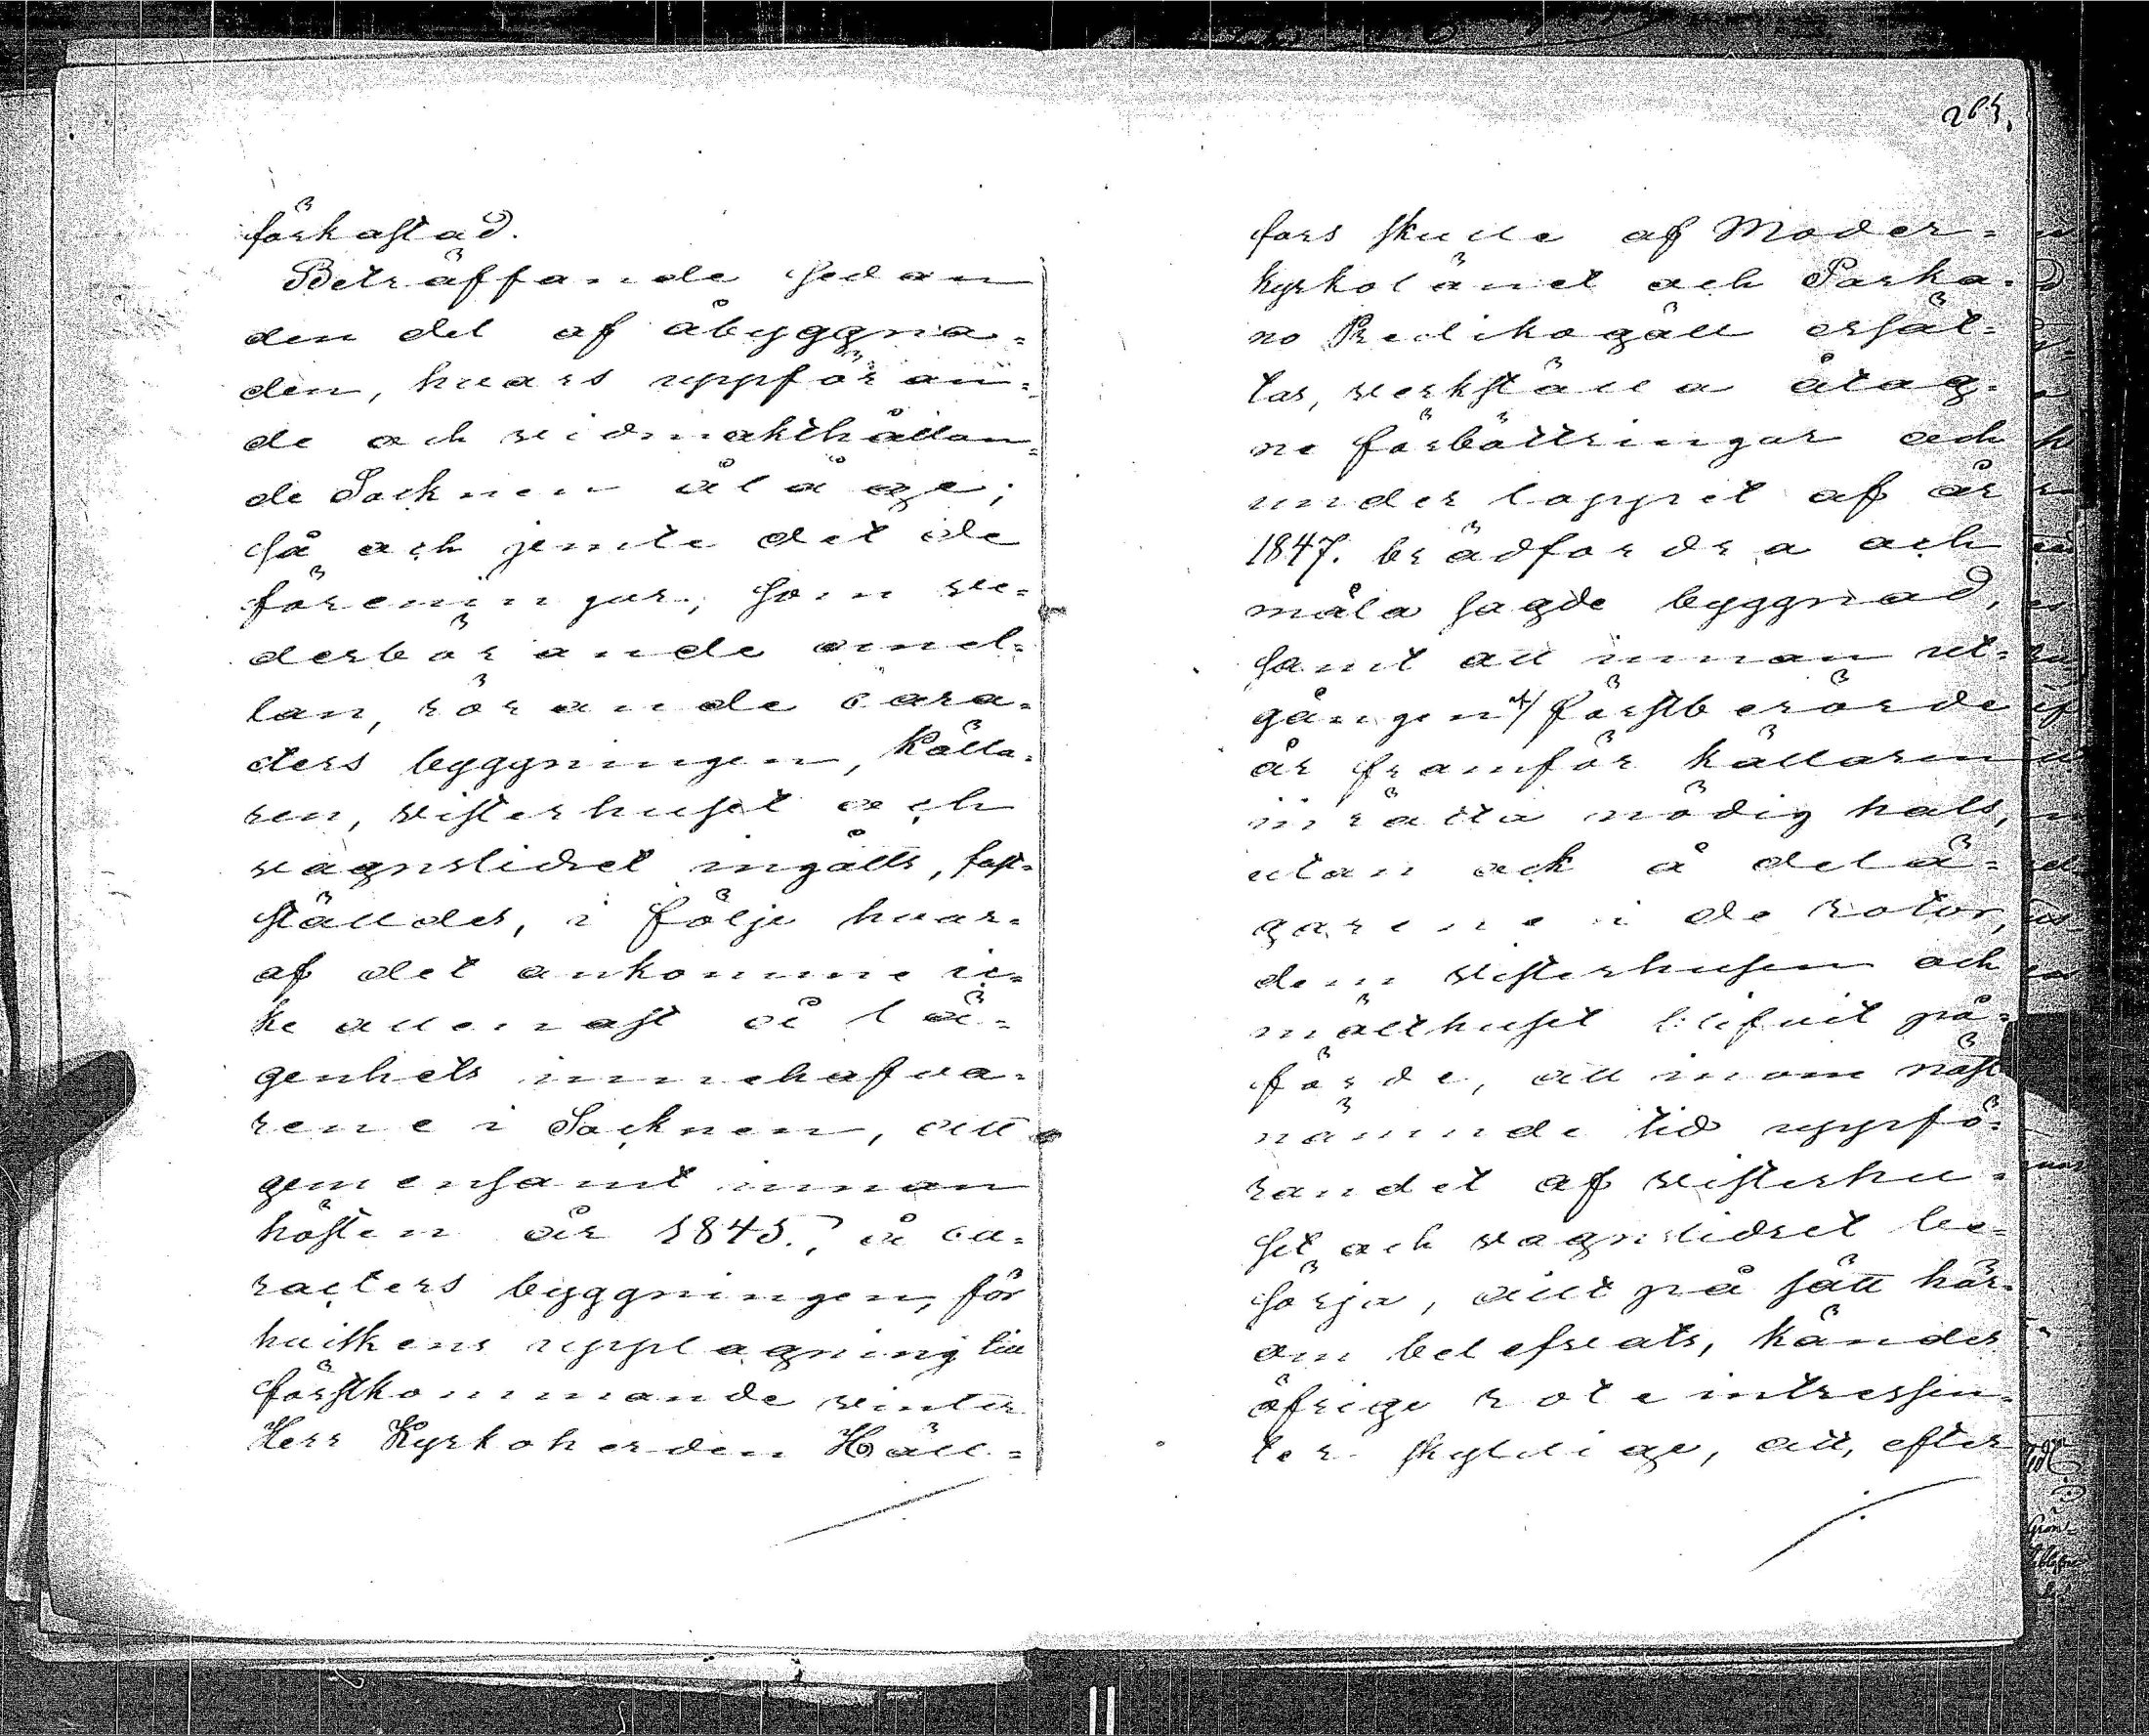 förkastad.
Beträffande sedan
den del af åbyggna=
den, hvars uppföran=
de och vidmakthållan=
de Socknen ålåge;
så och jemte det de
föreningar, som ve=
derbörande emel=
lan, rörande cara=
cters byggningen, källa=
ren, visterhuset och
vagnslidret ingåtts, fast=
ställdes, i följe hvar=
af det ankomme ic=
ke allenast å lä=
genhets innehafva=
rene i Socknen, att
gemensamt innan
hösten år 1845., å ca=
racters byggningen, för
hvilkens upplagning till
förstkommande vinter
Herr Kyrkoherden Häll=
265.
fors skulle af Moder=
kyrkolänet och Parka=
no Predikogäll ersät=
tas, verkställa åtag=
ne förbättringar och
under loppet af år
1847. brädfordra och
måla sagde byggnad,
samt att innan ut=
gången af förstberörde
år framför källaren
inrätta nödig hals,
utan ock å delä=
garene i de rotor,
dem visterhusen och
mälthuset blifvit på=
förde, att inom näst
nämnde tid uppfö=
randet af visterhu=
set och vagnslidret be=
sörja, allt på sätt här=
om belefvats, kändes
öfrige roteintressen=
ter skyldige, att, efter